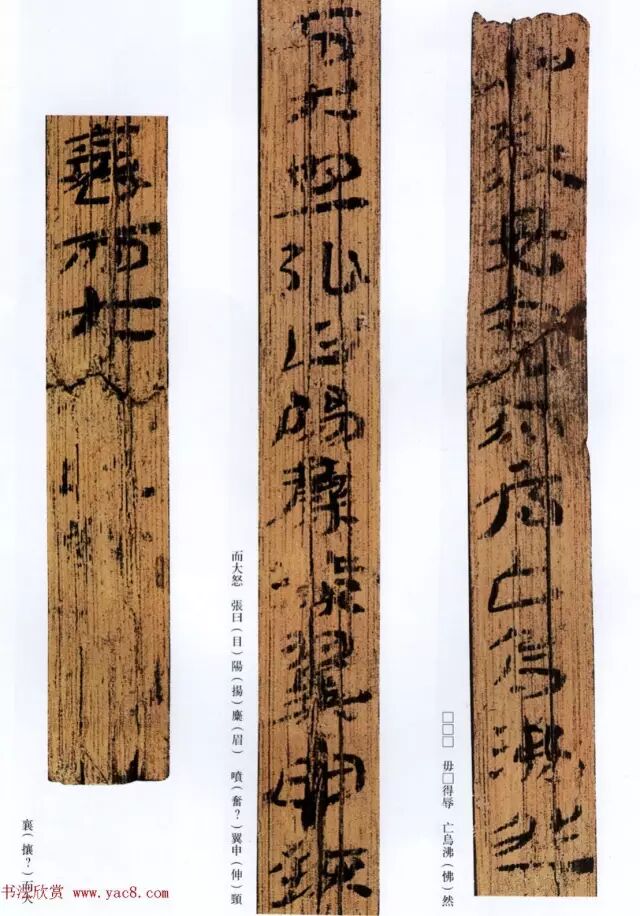 □□□ 毋□得辱 亡烏沸（怫）然
而大怒 張曰（目）陽（揚）麋（眉） 噴（奮？）翼申（伸）頸
襄（攘？）
书法欣赏 www.yac8.com